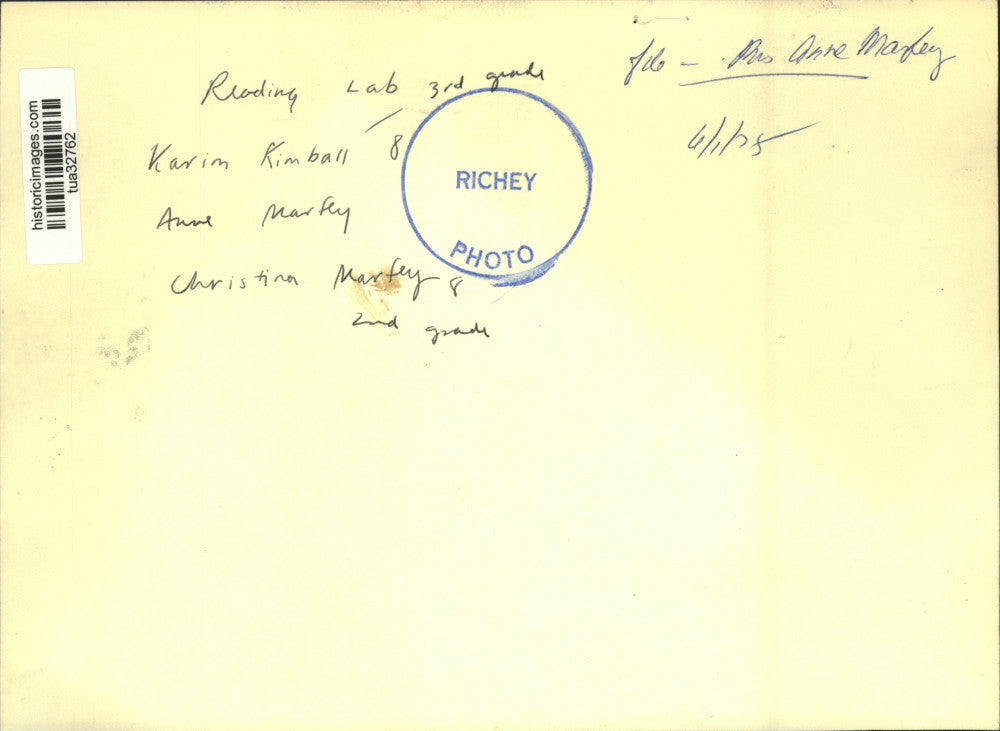 historicimages.com
tua32762
file - Mrs Anne Marfey
6/1/75
Reading Lab 3rd grade
Karim Kimball 8
Anne Marfey
Christina Marfey 8
2nd grade
RICHEY
PHOTO